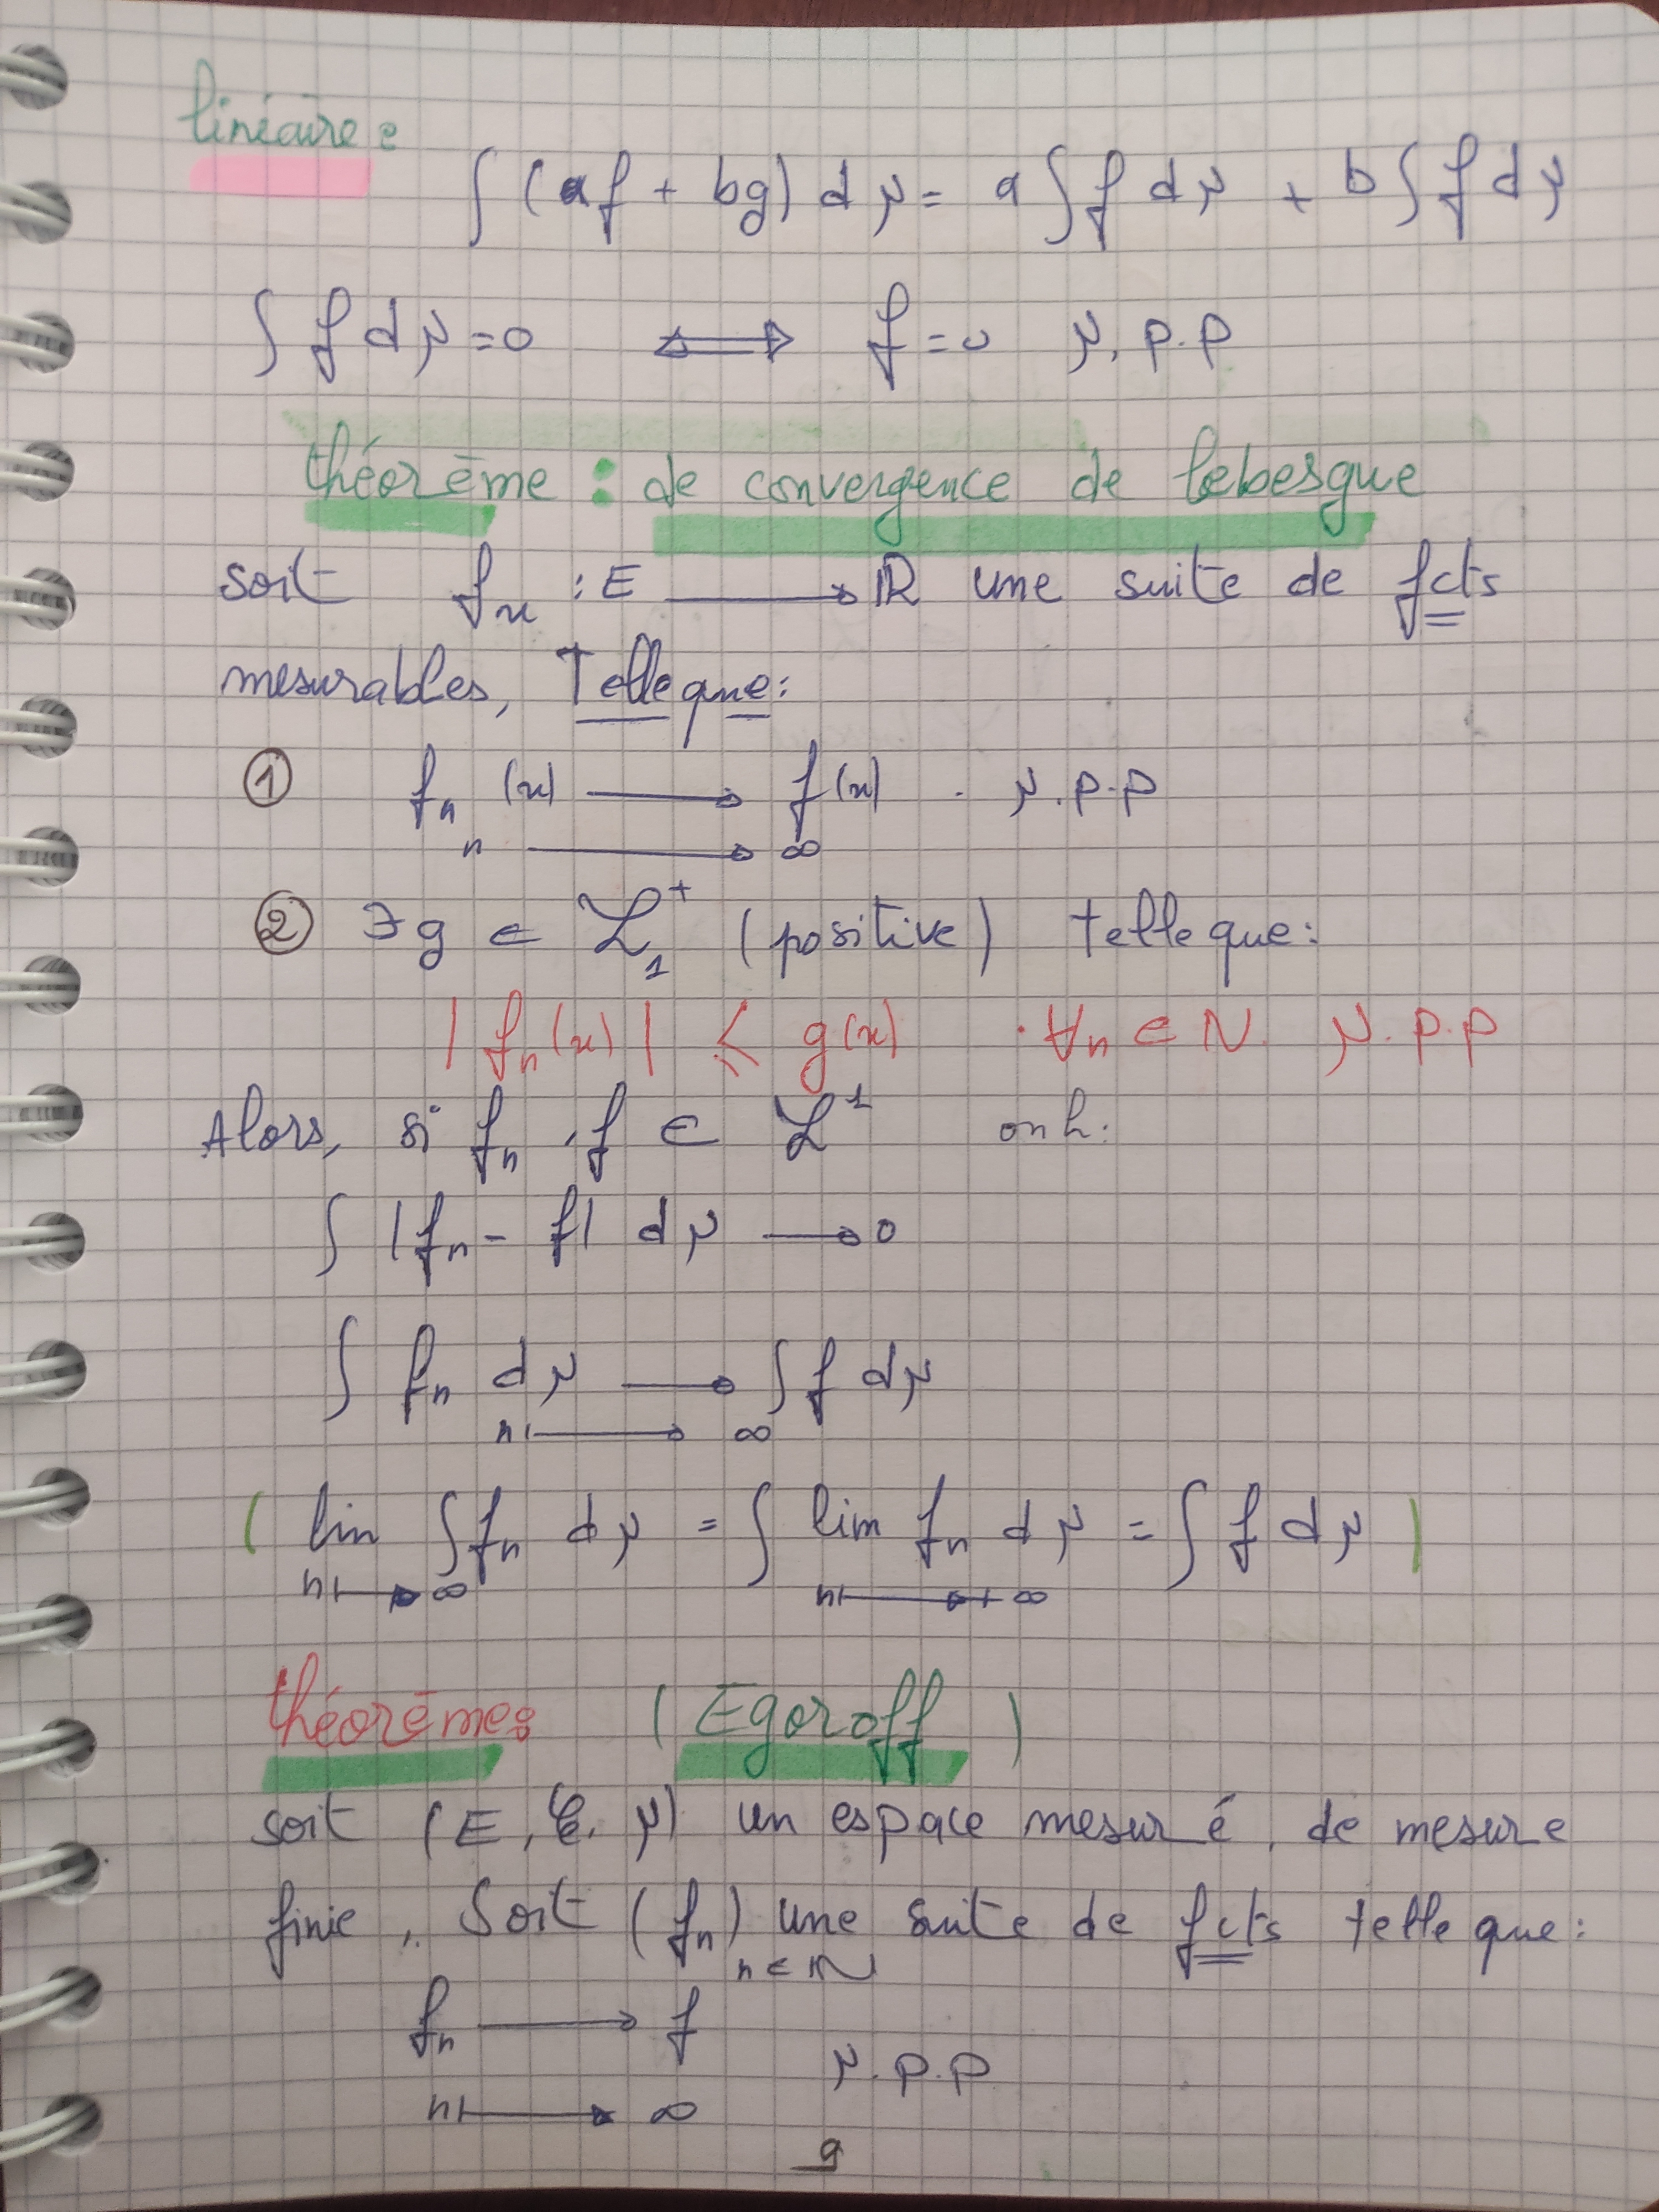 linéaire :
∫ (af + bg) dμ = a ∫ f dμ + b ∫ f dμ
∫ f dμ = 0 ⟺ f = 0 μ. p.p
théorème : de convergence de lebesgue
soit fn : E ⟶ ℝ une suite de fcts
mesurables, Telle que :
① fn (x) ⟶ f(x) . μ.p.p
n ⟶ ∞
② ∃ g ∈ ℒ₁⁺ (positive) telle que :
| fn(x) | ⩽ g(x) . ∀n ∈ N. μ.p.p
Alors, si fn, f ∈ ℒ¹
∫ |fn - f| dμ ⟶ 0
∫ fn dμ ⟶ ∫ f dμ
n ⟼ ∞
( lim ∫ fn dμ = ∫ lim fn dμ = ∫ f dμ )
n ⟼ ∞ n ⟼ +∞
théorème : ( Egoroff )
soit (E, 𝒞, μ) un espace mesuré, de mesure
finie, Soit (fn) n ∈ ℕ une suite de fcts telle que :
fn ⟶ f
μ.p.p
n ⟼ ∞
9